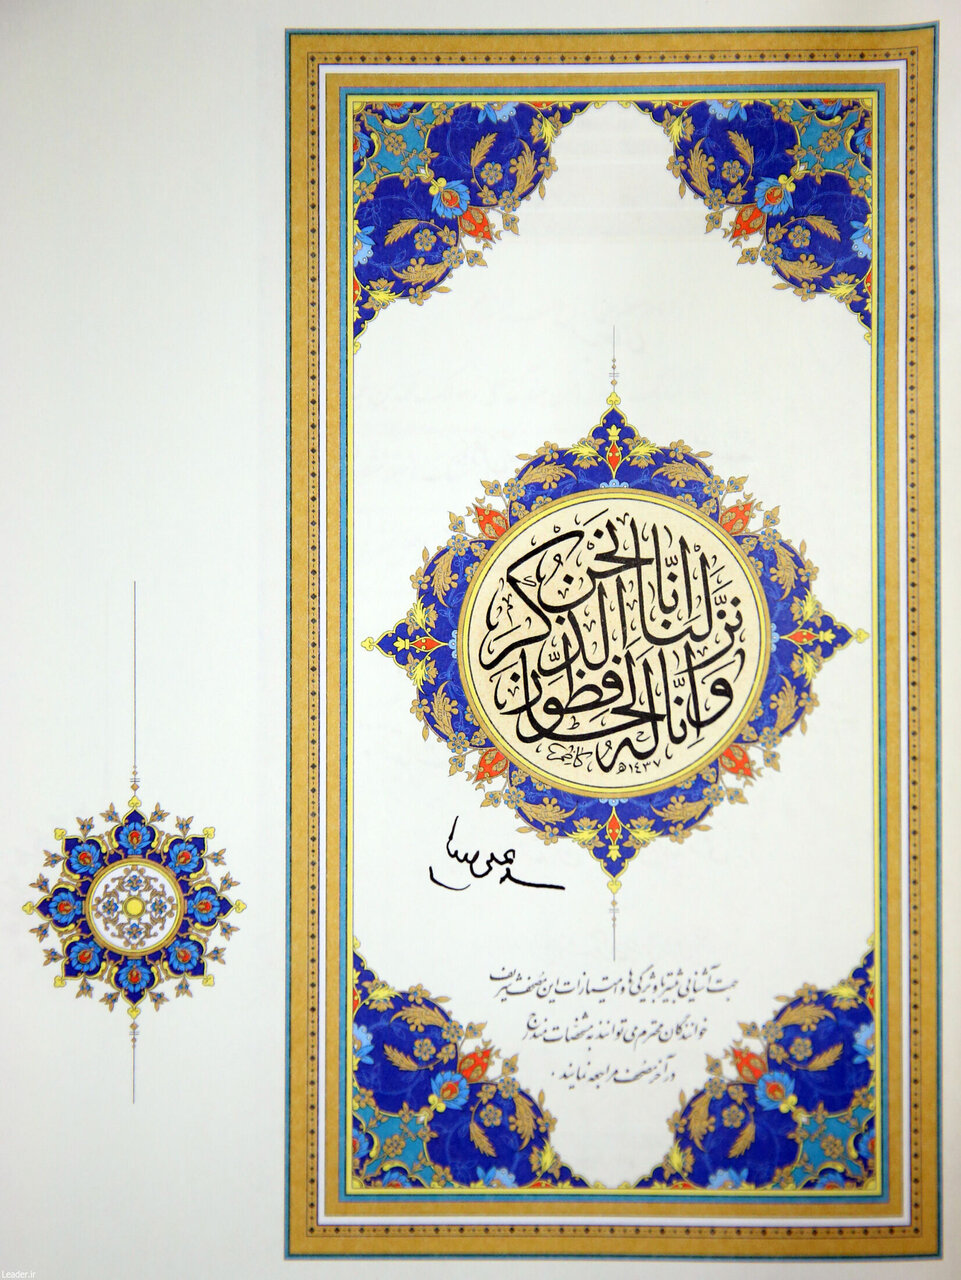 إنّا نحن
نزّلنا الذّكر
وإنّا له لحافظون
١٤٣٧هـ
جهت آشنایی بیشتر با ویژگی‌ها و امتیازات این مصحف شریف
خوانندگان محترم می‌توانند به مشخصات مندرج
در آخر مصحف مراجعه نمایند.
Leader.ir